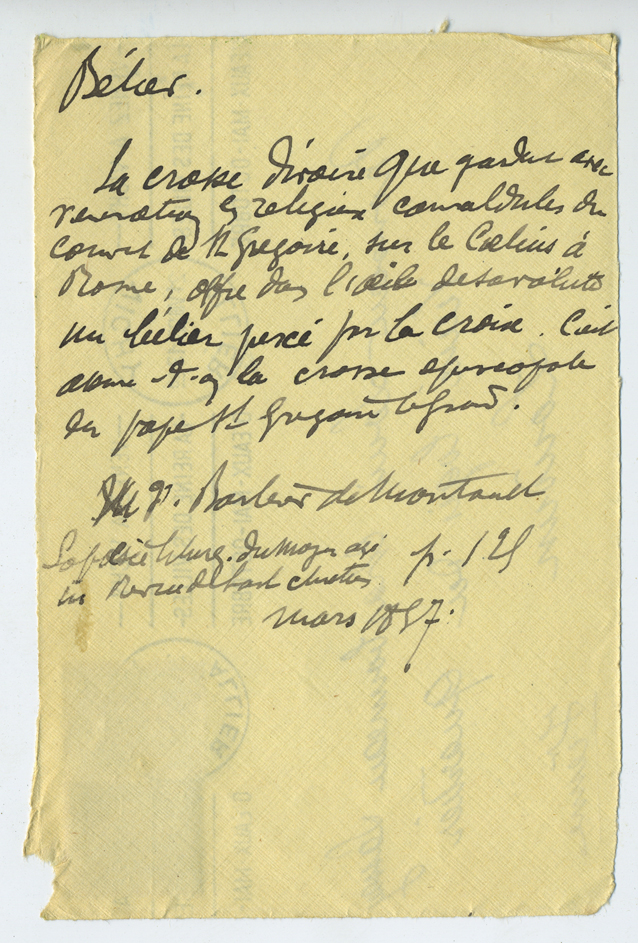 Bélier.
La crosse d'ivoire que gardent avec
vénération les religieux camaldules du
couvent de St Grégoire, sur le Cœlius à
Rome, offre dans l'œil de sa volute
un bélier percé par la croix. C'est
la crosse
du pape St Grégoire le Grand.
Barbier de Montault
liturg. du Moyen age p. 125
in Revue de l'art chrétien
mars 1857.